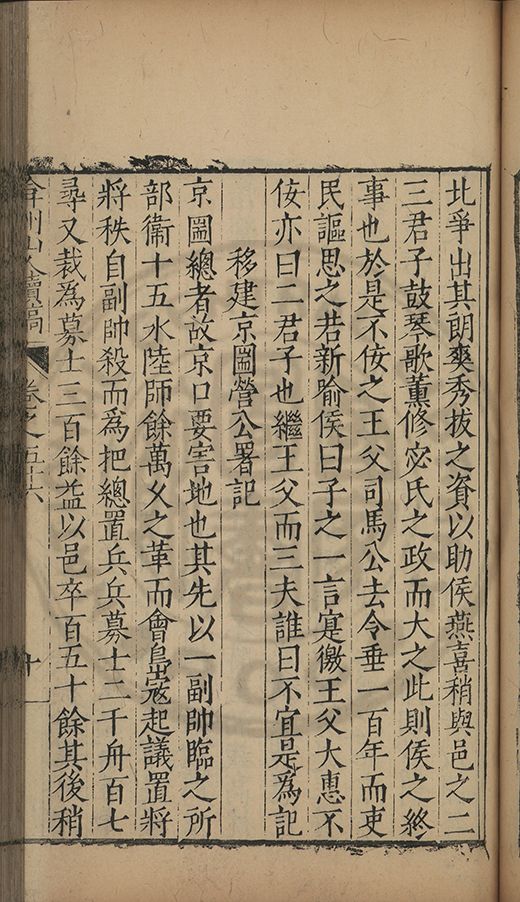 北爭出其朗爽秀拔之資以助侯燕喜稍與邑之二
三君子鼓琴歌薰修宓氏之政而大之此則侯之終
事也於是不佞之王父司馬公去令垂一百年而吏
民謳思之若新喻侯曰子之一言寔徼王父大惠不
佞亦曰二君子也繼王父而三夫誰曰不宜是為記
移建京圌營公署記
京圌總者故京口要害地也其先以一副帥臨之所
部衛十五水陸師餘萬久之革而會島寇起議置將
將秩自副帥殺而為把總置兵兵募士二千舟百七
尋又裁為募士三百餘益以邑卒百五十餘其後稍
弇州山人續稿
卷之五十六
十